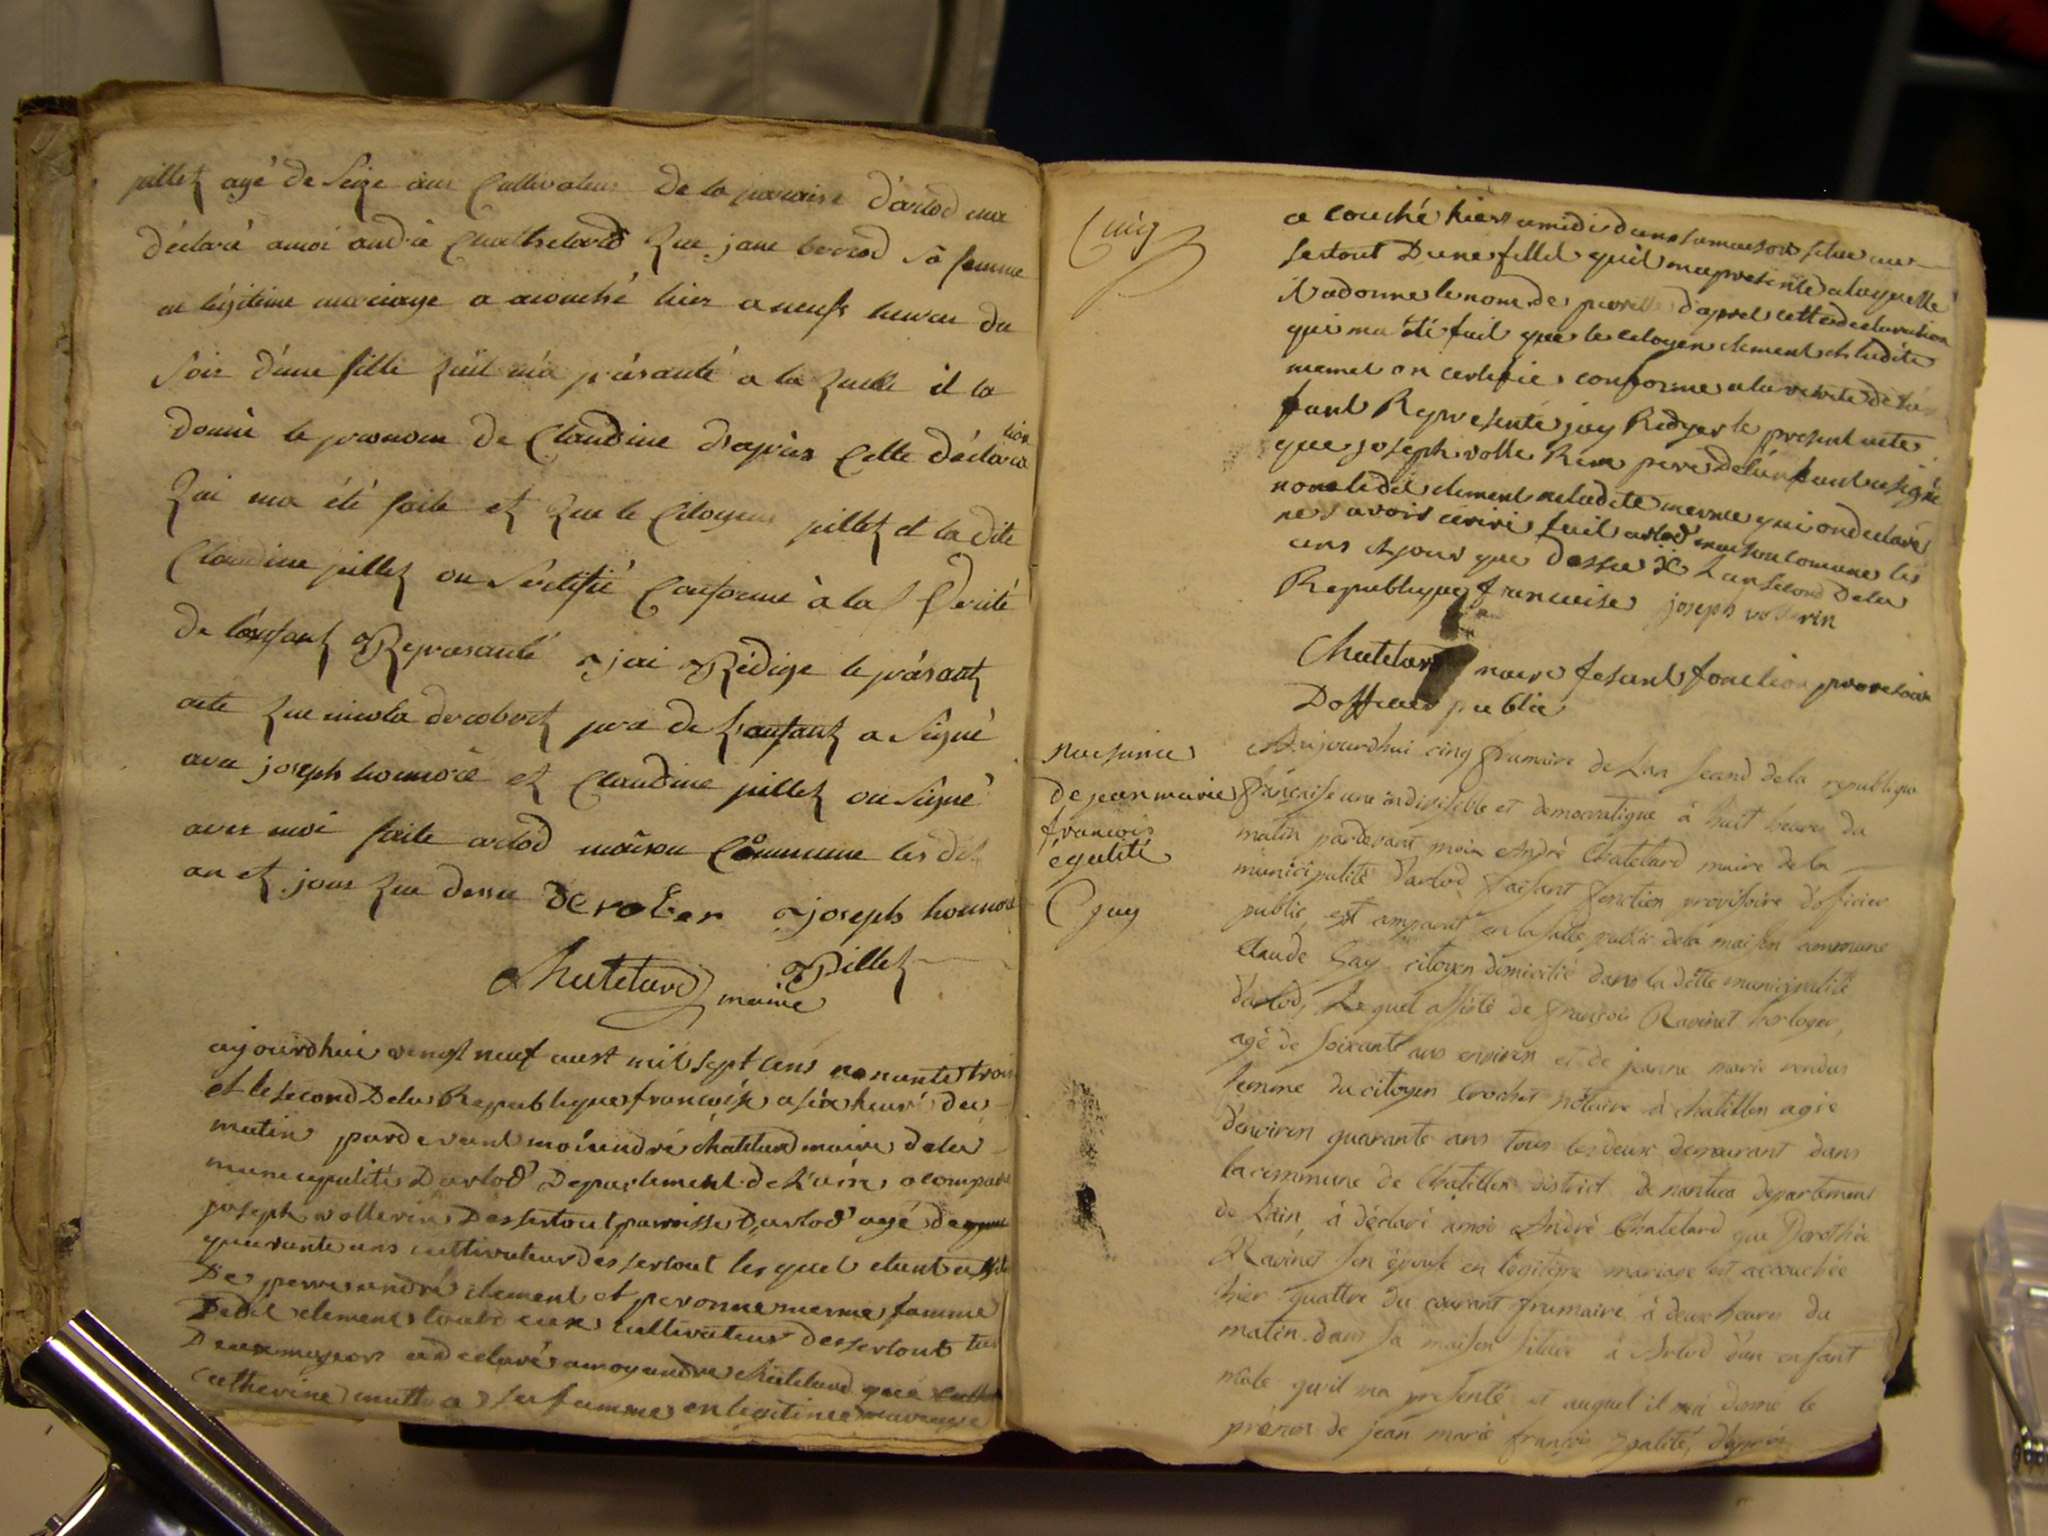 pillet agé de seize ans Cultivateur de la paroise d'arlod mа
déclaré amoi andré Chathelard que jane berrod sa femme
en légitime mariage a acouché hier a neufs heures du
soir d'une fille quil m'a présanté a la quelle il la
donné le pronom de Claudine daprès Cette déclara
tion
qui ma été faite et que le Citoyens pillet et la dite
Claudine pillet on Sertifié Conforme à la Verité
de l'enfant Represanté jai Rédige le présant
acte que nicola derobert pere de l'anfant a Signé
avec joseph honnoré et Claudine pillet on Signé
avec moi faite arlod maison Commune les dit
an et jour que dessu Derober joseph honnoré
Pillet
Chatelard maire
aujourdhui vengt neuf aust mil sept cens nonante trois
et le second Dela Republique francoise a six heure du
matin pardevant moi andré chatelard maire dela
municepalité Darlod Departement de L'ain a compare
joseph vollerin Dessertout paroisse Darlod agé de
quarante ans cultivateur dessertout les quel etant assité
De pierre andré clement et peronne merme famme
Dedit clement toute eux cultivateur dessertout tus
Deux majeors adeclaré amoy andre chatelard que
Catherine mutta sa famme en legitime mariage
Cuig
a couché hier a midi dans sa maison situe au
sertout Dune fillet quil ma presenté a laquelle
il adonne le nom de daprel cette declaration
qui ma été fait que le citoyen clement et ladite
merme on certifie conforme a la verité de lan
fant Representé jay Rediger le present acte
que joseph volle Rin pere de lanfant a signé
non ledit clement ne ladite merme qui on declaré
ne savoir ecrire fait arlod maison comune les
ans et jour que dessu L'an second Dela
Republique francaise joseph vollerin
Chatelard maire fesant fonction provesoire
Dofficier public
naisance
de jean marie
francois
égalité
Gay
Aujourdhui cinq frumaire de L'an second de la republique
française une indivisible et democratique à huit heures du
matin pardevant moi André Chatelard maire de la
municipalité d'arlod faisant fonction provisoire d'oficier
public est comparut en la salle public dela maison commune
Claude Gay citoyen domicilié dans la ditte municipalité
d'arlod, Lequel assisté de françois Ravinet horloger,
agé de soixante ans environ et de jeanne marie
femme du citoyen Crochet notaire à chatillon agée
d'environ quarante ans tous les deux demeurant dans
la commune de Chatillon district de nantua departement
de Lain, à déclaré amoi André Chatelard que Dorothée
Ravinet son épouse en légitime mariage est accouchée
hier quattre du courant frumaire à deux heures du
matin dans sa maison située à Arlod d'un enfant
male qu'il ma présenté et auquel il m'a donné le
prénom de jean marie françois égalité, d'après